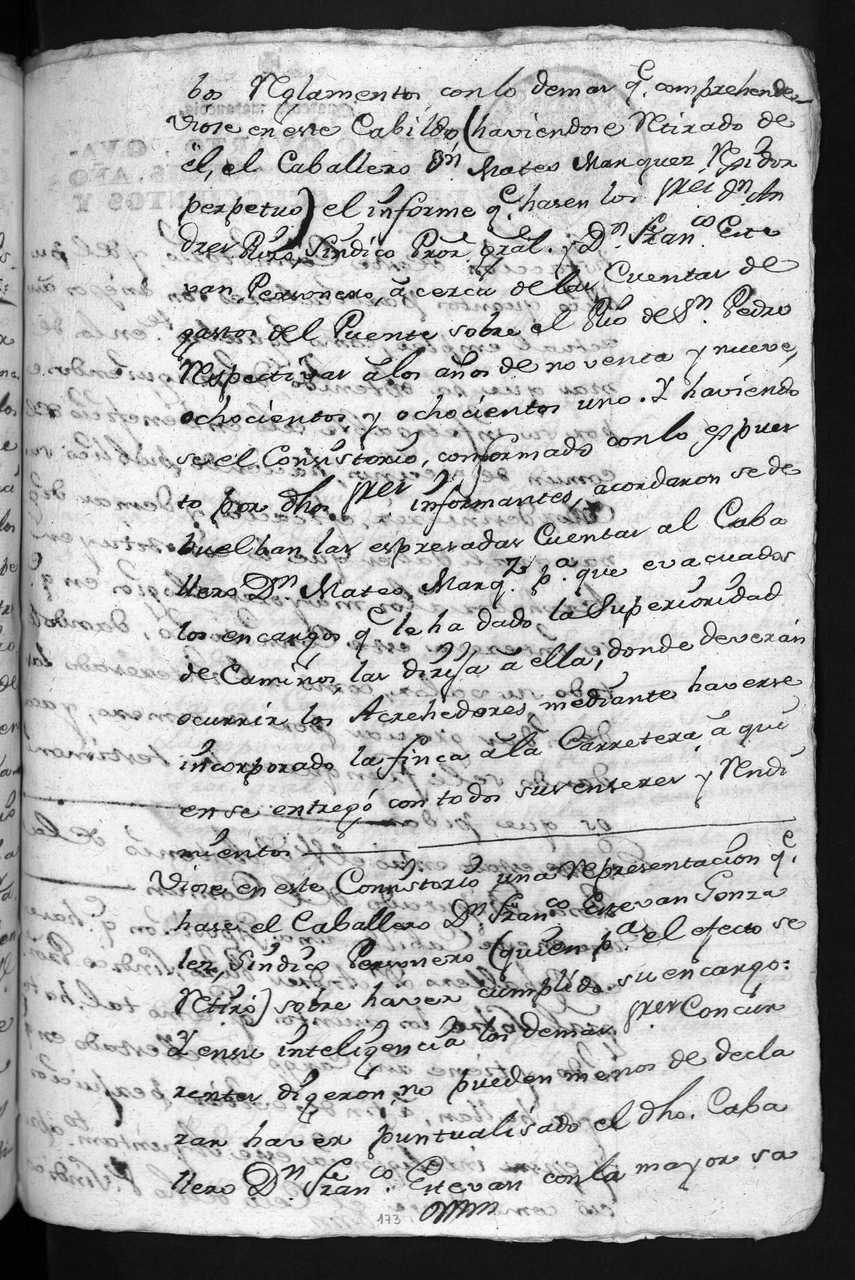 bos Reglamentos con lo demas q.e comprehende
Viose en este Cabildo (haviendose Retirado de
él, el Caballero D.n Mateo Marquez Regidor
perpetuo) el informe q.e hasen los S.res D.n An
dres Ruiz Síndico Pror. gral. y D.n Fran.co Este
van Personero, á cerca de las Cuentas de
gastos del Puente sobre el Rio de S.n Pedro
Respectivas á los años de noventa y nueve,
ochocientos y ochocientos uno. Y haviendo
se el Consistorio, conformado con lo espues
to por dhos S.res informantes, acordaron se de
buelban las espresadas Cuentas al Caba
llero D.n Mateo Marq.z p.a que evacuados
los encargos q.e le ha dado la Superioridad
de Caminos, las dirija á ella, donde deverán
ocurrir los Acrehedores, mediante haverse
incorporado la finca á la Carretera, á qui
en se entregó con todos sus enseres y Rendi
mientos
Viose en este Consistorio una Representacion q.e
hase el Caballero D.n Fran.co Estevan Gonza
lez, Síndico Personero (quien p.a el efecto se
Retiró) sobre haver cumplido su encargo:
Y en su inteligencia los demas S.res Concur
rentes digeron, no pueden menos de decla
rar haver puntualisado el dho. Caba
llero D.n Fran.co Estevan con la mayor sa
173